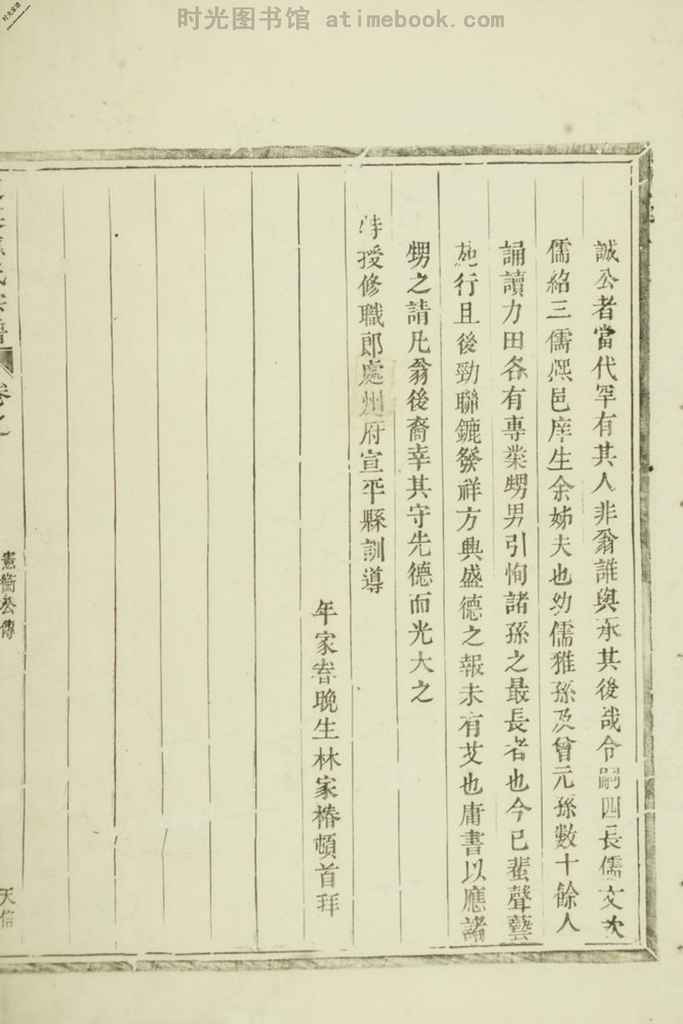 时光图书馆 atimebook.com
誠公者當代罕有其人非翁誰與承其後哉令嗣四長儒文次
儒紹三儒熙邑庠生余姊夫也幼儒雅孫及曾元孫數十餘人
誦讀力田各有專業甥男引恂諸孫之最長者也今已蜚聲藝
苑行且後勁聯鑣發祥方興盛德之報未有艾也庸書以應諸
甥之請凡翁後裔幸其守先德而光大之
特授修職郎處州府宣平縣訓導
年家眷晚生林家椿頓首拜
氏宗譜
卷之一
憲衢公傳
天倫